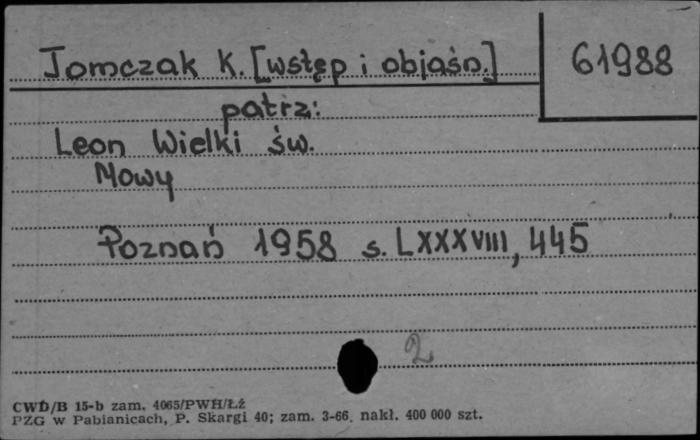 Tomczak K. [wstęp i objaśn.]
61988
patrz:
Leon Wielki św.
Mowy
Poznań 1958 s. LXXXVIII, 445
2
CWD/B 15-b zam. 4065/PWH/Łż
PZG w Pabianicach, P. Skargi 40; zam. 3-66. nakł. 400 000 szt.